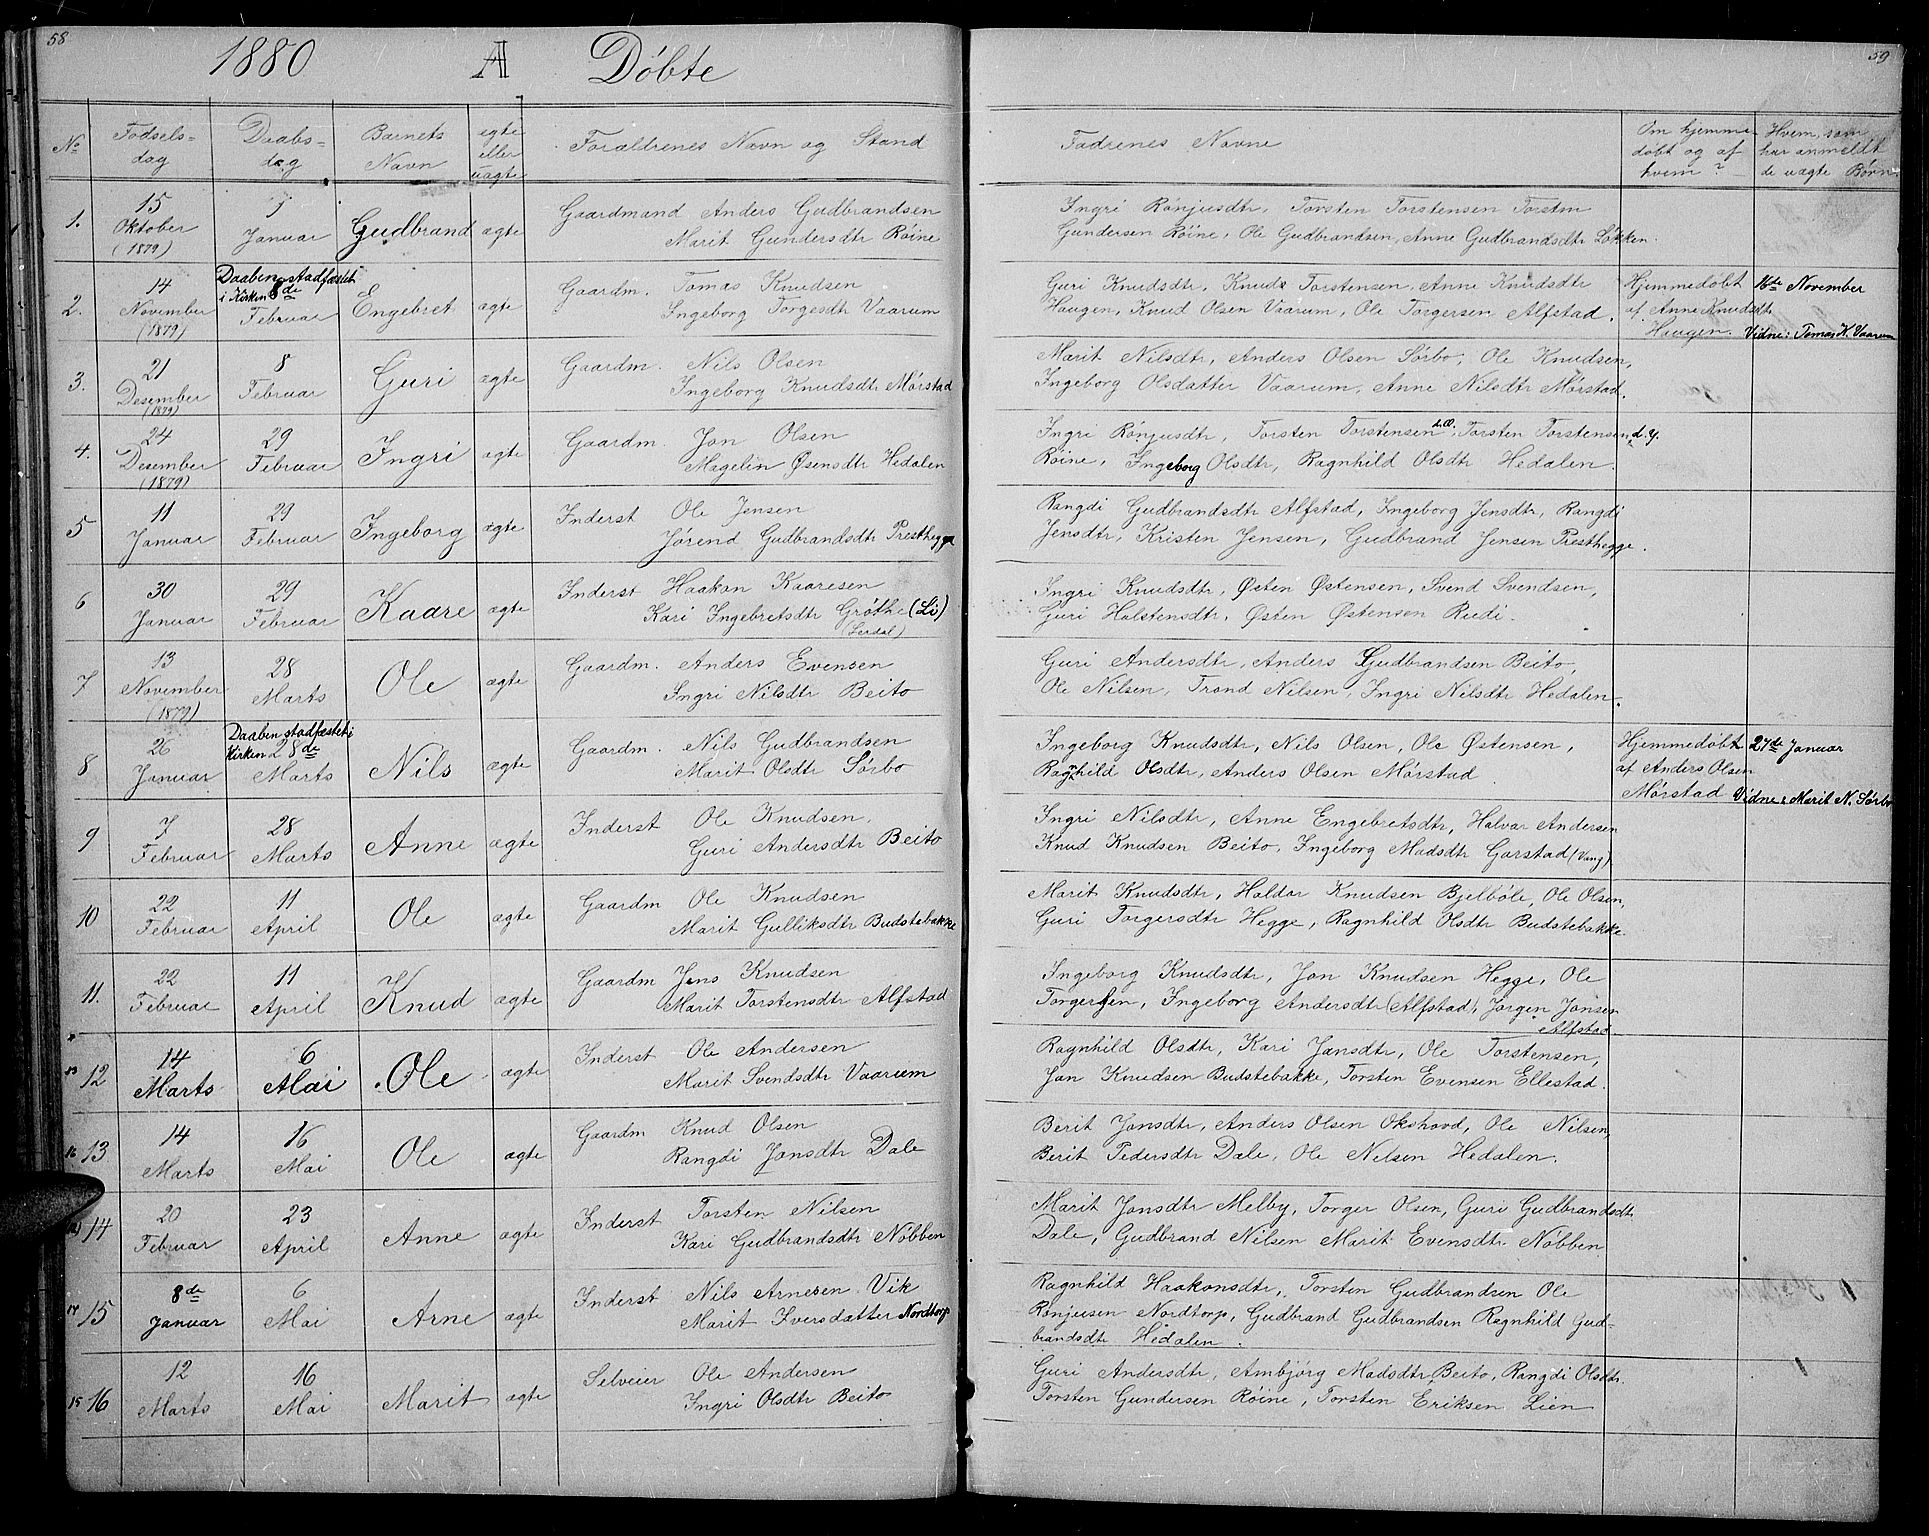 58
1880 A Döbte
59
No
Fødsels-
dag
Daabs-
dag
Barnets
Navn
egte
eller
uægte
Forældrenes Navn og Stand
Fadrenes Navne
Om hjemme-
døbt og af
hvem?
Hvem som
har anmeldt
de uægte Børn
1.
15
Oktober
(1879)
Januar
Gudbrand
ægte
Gaardmand Anders Gudbrandsen
Marit Gundersdtr Röine
Ingri Rönjusdtr, Torsten Torstensen Torsten
Gundersen Röine, Ole Gudbrandsen, Anne Gudbrandsdtr Lökken.
2.
14
November
(1879)
Daaben stadfæstet
i Kirken 8de
Februar
Engebret
ægte
Gaardm. Tomas Knudsen
Ingeborg Torgesdtr Vaarum
Guri Knudsdtr, Knud Torstensen, Anne Knudsdtr
Haugen, Knud Olsen Vaarum, Ole Torgersen Alfstad.
Hjemmedöbt
af Anne Knudsdtr
Haugen.
16de November
Vidne: Tomas K. Vaarum
3.
21
Desember
(1879)
8
Februar
Guri
ægte
Gaardm. Nils Olsen
Ingeborg Knudsdtr Mörstad
Marit Nilsdtr, Anders Olsen Sörbo, Ole Knudsen,
Ingeborg Olsdatter Vaarum, Anne Nilsdtr Mörstad.
4.
24
Desember
(1879)
29
Februar
Ingri
ægte
Gaardm. Jon Olsen
Magelin Øsensdtr Hedalen
Ingri Rönjusdtr, Torsten Torstensen d.Æ. Torsten Torstensen d.y.
Röine, Ingeborg Olsdtr, Ragnhild Olsdtr Hedalen.
5
11
Januar
29
Februar
Ingeborg
ægte
Inderst Ole Jensen
Jörend Gudbrandsdtr Presthegge
Rangdi Gudbrandsdtr Alfstad, Ingeborg Jensdtr, Rangdi
Jensdtr, Kristen Jensen, Gudbrand Jensen Presthegge.
6
30
Januar
29
Februar
Kaare
ægte
Inderst Haakon Kaaresen
Kari Ingebretsdtr Gröthe (Li)
(Lerdal)
Ingri Knudsdtr, Østen Østensen, Svend Svendsen,
Guri Halstensdtr, Østen Østensen Rudi.
7
13
November
(1879)
28
Marts
Ole
ægte
Gaardm. Anders Evensen
Ingri Nilsdtr Beito
Guri Andersdtr, Anders Gudbrandsen Beito,
Ole Nilsen, Trond Nilsen, Ingri Nilsdtr Hedalen.
8
26
Januar
Daaben stadfæstet i
Kirken 28de
Marts
Nils
ægte
Gaardm. Nils Gudbrandsen
Marit Olsdtr Sörbo
Ingeborg Knudsdtr, Nils Olsen, Ole Østensen,
Ragnhild Olsdtr, Anders Olsen Mörstad
Hjemmedöbt
af Anders Olsen
Mörstad
27de Januar
Vidne: Marit N. Sörbo
9
7
Februar
28
Marts
Anne
ægte
Inderst Ole Knudsen.
Guri Andersdtr Beito
Ingri Nilsdtr, Anne Engebretsdtr, Halvar Andersen
Knud Knudsen Beito, Ingeborg Madsdtr Garstad (Vang)
10
22
Februar
11
April
Ole
ægte
Gaardm Ole Knudsen
Marit Gulliksdtr Budstebakke
Marit Knudsdtr, Haldor Knudsen Bjelböle, Ole Olsen,
Guri Torgersdtr Hegge, Ragnhild Olsdtr Budstebakke.
11.
22
Februar
11
April
Knud
ægte
Gaardm Jens Knudsen
Marit Torstensdtr Alfstad
Ingeborg Knudsdtr, Jon Knudsen Hegge, Ole
Torgersen, Ingeborg Andersdtr (Alfstad), Jörgen Jonsen
Alfstad
13 12
14
Marts
6
Mai
Ole
ægte
Inderst Ole Andersen
Marit Svendsdtr Vaarum
Ragnhild Olsdtr, Kari Jonsdtr, Ole Torstensen,
Jon Knudsen Budstebakke, Torsten Evensen Ellestad.
16 13
14
Marts
16
Mai
Ole
ægte
Gaardm Knud Olsen
Rangdi Jonsdtr Dale
Berit Jonsdtr, Anders Olsen Okshovd, Ole Nilsen,
Berit Pedersdtr Dale, Ole Nilsen Hedalen.
14
20
Februar
23
April
Anne
ægte
Inderst Torsten Nilsen
Kari Gudbrandsdtr Nöbben
Marit Jonsdtr Melby, Torger Olsen, Guri Gudbrandsdtr
Dale, Gudbrand Nilsen Marit Evensdtr Nöbben
14 15
8de
Januar
6
Mai
Arne
ægte
Inderst Nils Arnesen Vik
Marit Iversdatter Nordtorp
Ragnhild Haakonsdtr, Torsten Gudbrandsen Ole
Rönjusen Nordtorp, Gudbrand Gudbrandsen Ragnhild Gud-
brandsdtr Hedalen.
15 16
12
Marts
16
Mai
Marit
ægte
Selveier Ole Andersen
Ingri Olsdtr Beito
Guri Andersdtr, Ambjörg Madsdtr Beito, Rangdi Olsdtr.
Torsten Gundersen Röine, Torsten Eriksen Lien